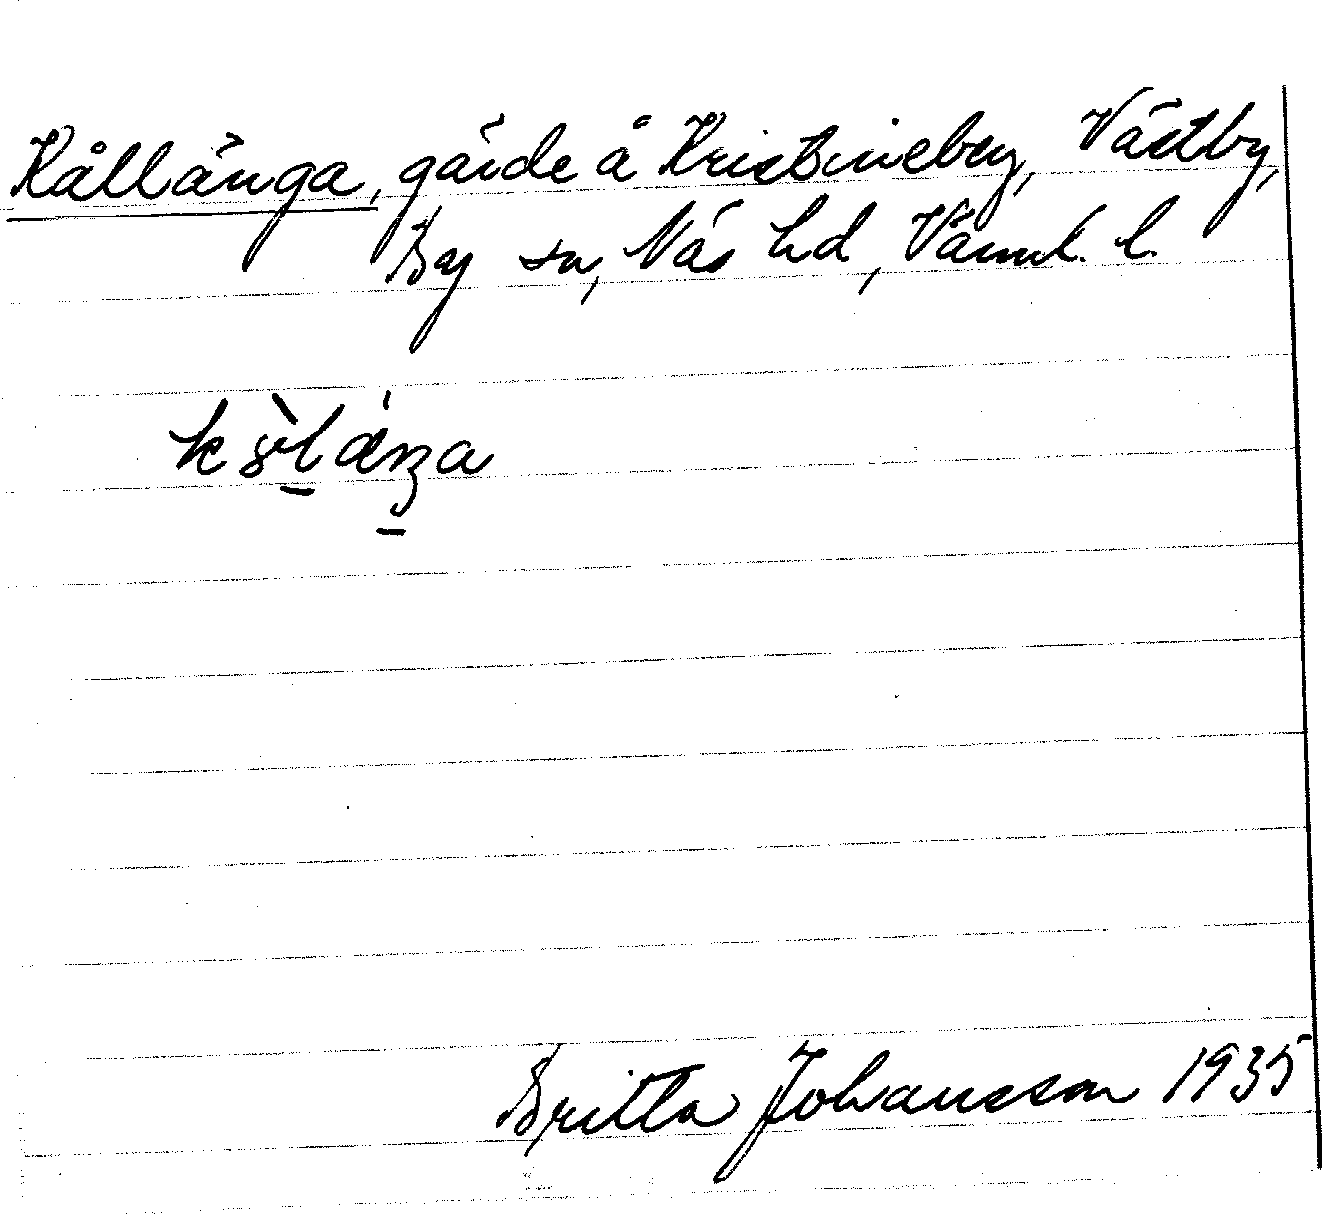 Kållänga, gärde å Kristineberg, Västby,
By sn, Näs hd, Värml. l.
Britta Johansson 1935